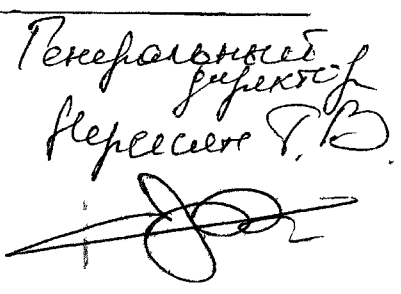 Генеральный
директор
Нерсесян Г. В.